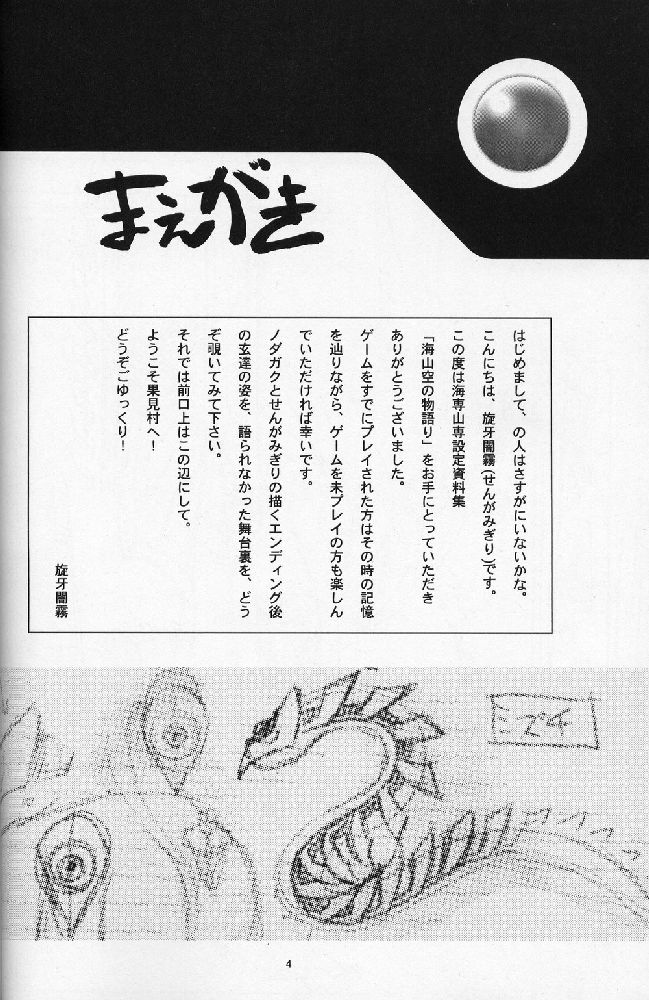 まえがき
はじめまして、の人はさすがにいないかな。
こんにちは、旋牙闇霧(せんがみぎり)です。
この度は海専山専設定資料集
「海山空の物語り」をお手にとっていただき
ありがとうございました。
ゲームをすでにプレイされた方はその時の記憶
を辿りながら、ゲームを未プレイの方も楽しん
でいただければ幸いです。
ノダガクとせんがみぎりの描くエンディング後
の玄達の姿を、語られなかった舞台裏を、どう
ぞ覗いてみて下さい。
それでは前口上はこの辺にして。
ようこそ果見村へ！
どうぞごゆっくり！
旋牙闇霧
4